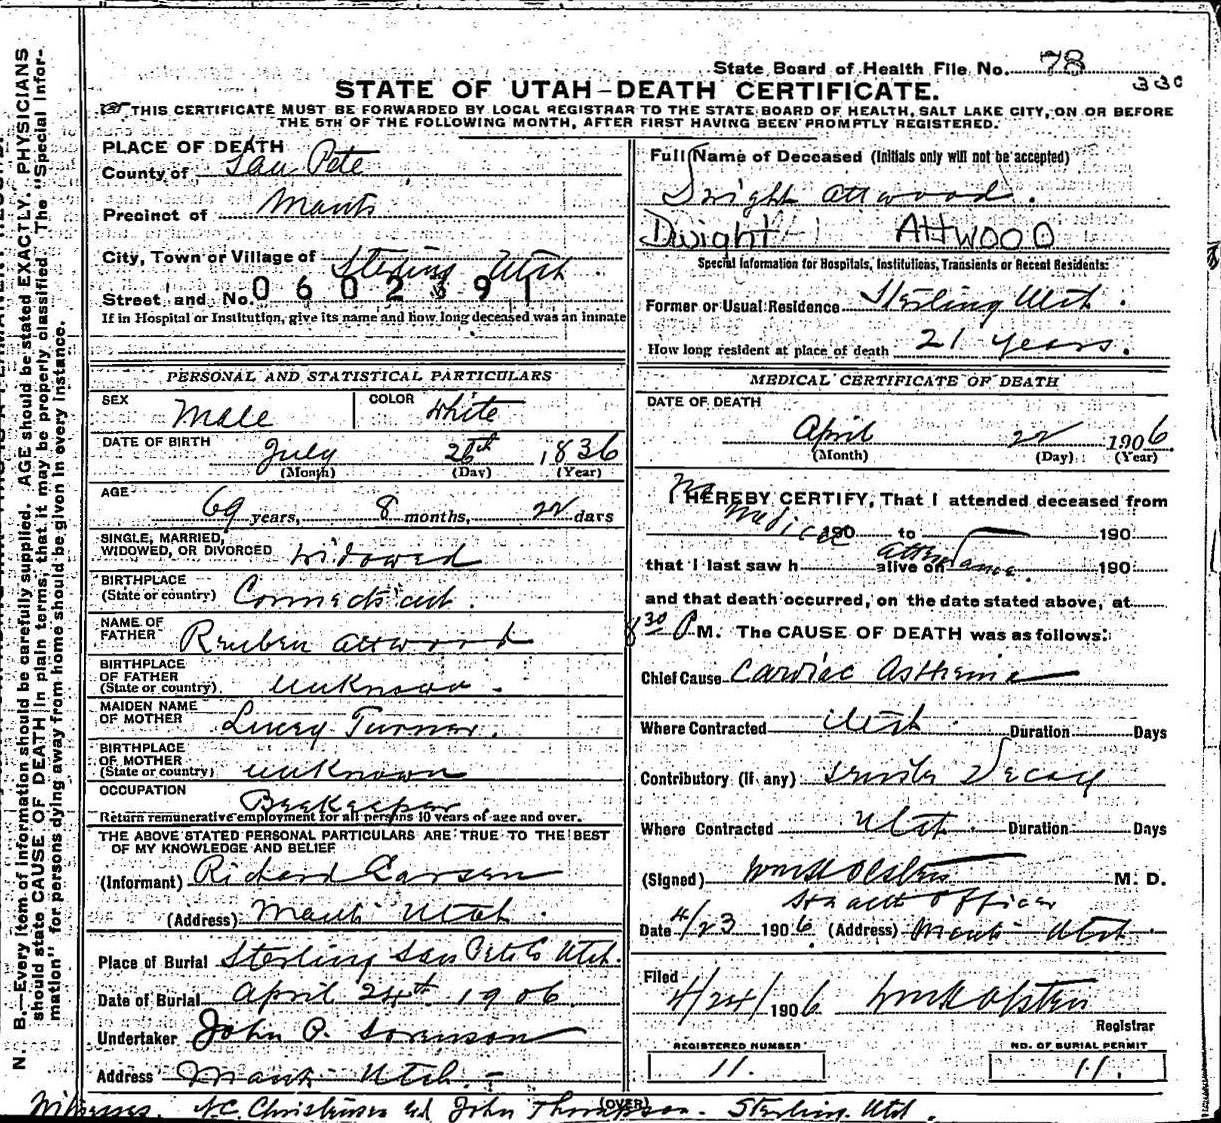 State Board of Health File No. 78
330
STATE OF UTAH-DEATH CERTIFICATE.
THIS CERTIFICATE MUST BE FORWARDED BY LOCAL REGISTRAR TO THE STATE BOARD OF HEALTH, SALT LAKE CITY, ON OR BEFORE
THE 5TH OF THE FOLLOWING MONTH, AFTER FIRST HAVING BEEN PROMPTLY REGISTERED.
N. B.—Every item of information should be carefully supplied. AGE should be stated EXACTLY. PHYSICIANS
should state CAUSE OF DEATH in plain terms, that it may be properly classified. The "Special Infor-
mation" for persons dying away from home should be given in every instance.
PLACE OF DEATH
County of San Pete
Precinct of Manti
City, Town or Village of Sterling Utah.
Street and No. 0602391
If in Hospital or Institution, give its name and how long deceased was an inmate
PERSONAL AND STATISTICAL PARTICULARS
SEX Male COLOR White
DATE OF BIRTH July 26th, 1836
(Month) (Day) (Year)
AGE 69 years, 8 months, 22 days
SINGLE, MARRIED,
WIDOWED, OR DIVORCED Widowed
BIRTHPLACE
(State or country) Connecticut.
NAME OF
FATHER Reuben Attwood
BIRTHPLACE
OF FATHER
(State or country) Unknown.
MAIDEN NAME
OF MOTHER Lucy Turner.
BIRTHPLACE
OF MOTHER
(State or country) unknown
OCCUPATION Beekeeper.
Return remunerative employment for all persons 10 years of age and over.
THE ABOVE STATED PERSONAL PARTICULARS ARE TRUE TO THE BEST
OF MY KNOWLEDGE AND BELIEF
(Informant) Richard Larsen
(Address) Manti Utah.
Place of Burial Sterling San Pete Co Utah.
Date of Burial April 24th 1906
Undertaker John P. Sorenson
Address Manti Utah.-
Full Name of Deceased (Initials only will not be accepted)
Dwight Attwood.
Dwight Attwood
Special Information for Hospitals, Institutions, Transients or Recent Residents:
Former or Usual Residence Sterling Utah.
How long resident at place of death 21 years.
MEDICAL CERTIFICATE OF DEATH
DATE OF DEATH
April 22 1906
(Month) (Day) (Year)
I HEREBY CERTIFY, That I attended deceased from
No Medical 190 to 190
that I last saw h alive on attendance. 190
and that death occurred, on the date stated above, at
8 30 P.M. The CAUSE OF DEATH was as follows:
Chief Cause Cardiac Asthenia
Where Contracted Utah. Duration Days
Contributory (if any) Senile Decay
Where Contracted Utah. Duration Days
(Signed) M. D.
Health Officer
Date 4/23 1906 (Address) Manti Utah.
Filed 4/24/1906
Registrar
REGISTERED NUMBER
11.
NO. OF BURIAL PERMIT
11.
(OVER)
Witnesses. N.C. Christensen and John Thompson. Sterling. Utah.